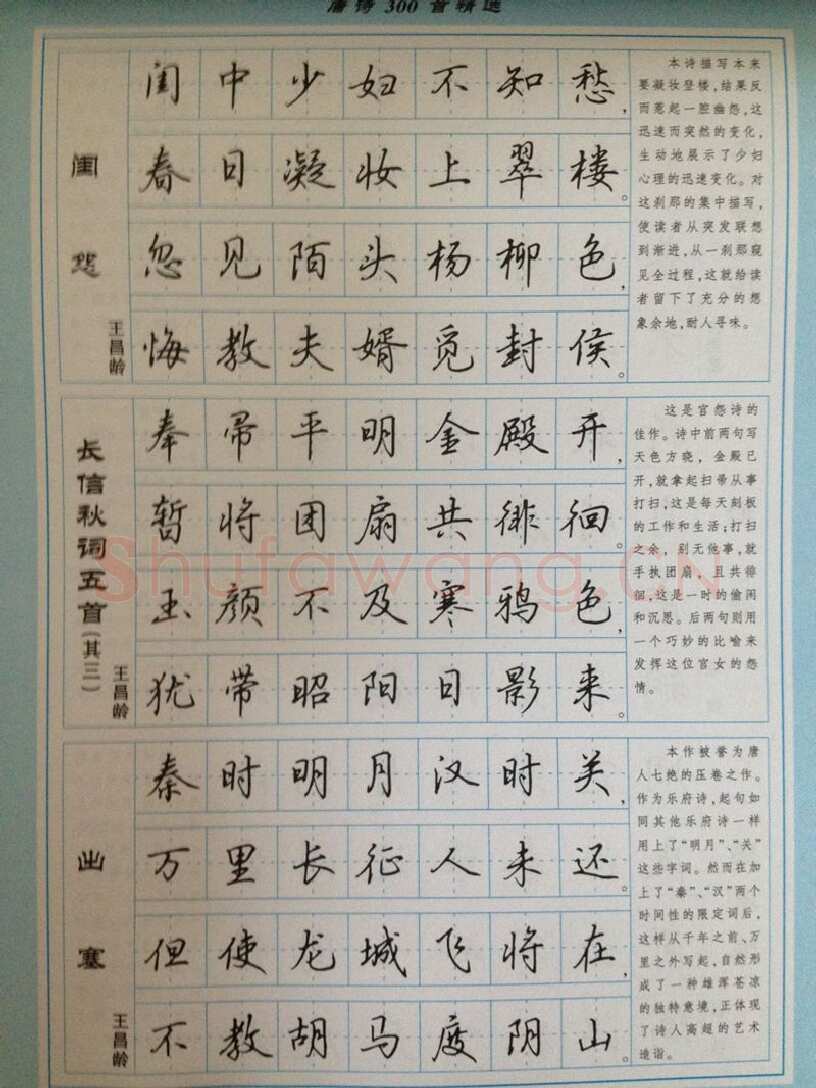 唐诗300首精选
闺怨
王昌龄
闺中少妇不知愁，
春日凝妆上翠楼。
忽见陌头杨柳色，
悔教夫婿觅封侯。
本诗描写本来
要凝妆登楼，结果反
而惹起一腔幽怨，这
迅速而突然的变化，
生动地展示了少妇
心理的迅速变化。对
这刹那的集中描写，
使读者从突发联想
到渐进，从一刹那窥
见全过程，这就给读
者留下了充分的想
象余地，耐人寻味。
长信秋词五首（其三）
王昌龄
奉帚平明金殿开，
暂将团扇共徘徊。
玉颜不及寒鸦色，
犹带昭阳日影来。
这是宫怨诗的
佳作。诗中前两句写
天色方晓，金殿已
开，就拿起扫帚从事
打扫，这是每天刻板
的工作和生活；打扫
之余，别无他事，就
手执团扇，且共徘
徊，这是一时的偷闲
和沉思。后两句则用
一个巧妙的比喻来
发挥这位宫女的怨
情。
出塞
王昌龄
秦时明月汉时关，
万里长征人未还。
但使龙城飞将在，
不教胡马度阴山。
本作被誉为唐
人七绝的压卷之作。
作为乐府诗，起句如
同其他乐府诗一样
用上了“明月”、“关”
这些字词。然而在加
上了“秦”、“汉”两个
时间性的限定词后，
这样从千年之前、万
里之外写起，自然形
成了一种雄浑苍凉
的独特意境，正体现
了诗人高超的艺术
造诣。
Shufawang.CN